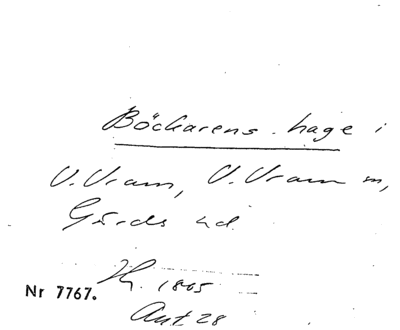 Böckarens hage i
V. Vram, V. Vram sn,
Gärds hd.
H. 1805
Nr 7767.
Ant 28